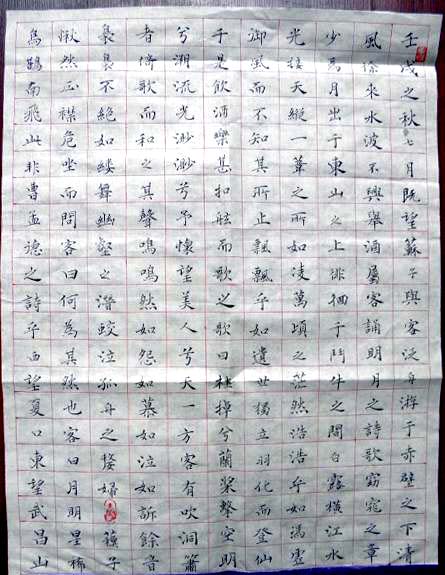 壬戌之秋七月既望蘇子與客泛舟游于赤壁之下清
風徐來水波不興舉酒屬客誦明月之詩歌窈窕之章
少焉月出于東山之上徘徊于鬥牛之間白露橫江水
光接天縱一葦之所如凌萬頃之茫然浩浩乎如馮虛
御風而不知其所止飄飄乎如遺世獨立羽化而登仙
于是飲酒樂甚扣舷而歌之歌曰桂棹兮蘭槳擊空明
兮溯流光渺渺兮予懷望美人兮天一方客有吹洞簫
者倚歌而和之其聲嗚嗚然如怨如慕如泣如訴餘音
裊裊不絕如縷舞幽壑之潛蛟泣孤舟之嫠婦蘇子
愀然正襟危坐而問客曰何為其然也客曰月明星稀
烏鵲南飛此非曹孟德之詩乎西望夏口東望武昌山